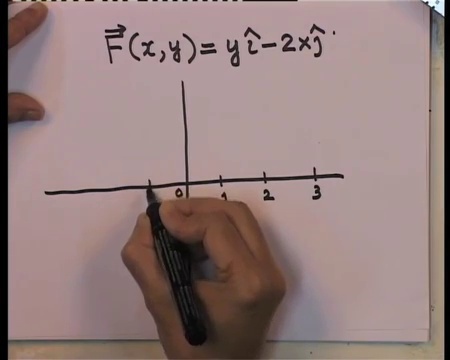 F⃗(x,y) = yî − 2xĵ
0 1 2 3